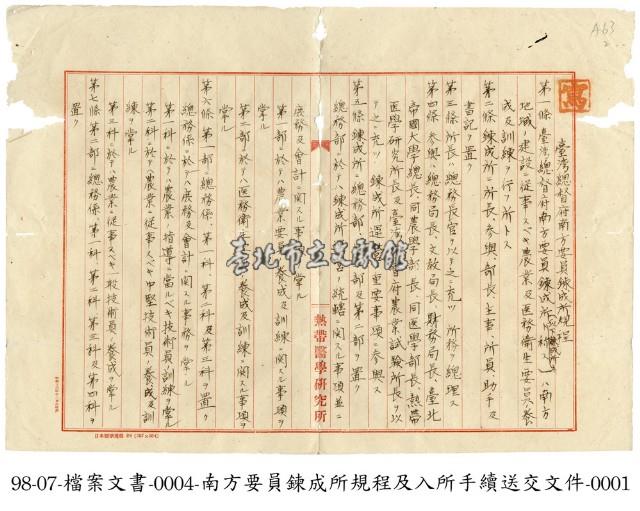 A63
2
寫
臺湾總督府南方要員錬成所規程
第一條 臺湾總督府南方要員錬成所ハ南方
地域ノ建設ニ從事スベキ農業及医務衛生要員ノ養
成及訓練ヲ行フ所トス
第二條 錬成所ニ所長、参與、部長、主事、所員、助手及
書記ヲ置ク
第三條 所長ハ總務長官ヲ以テ之ニ充ツ 所務ヲ總理ス
第四條 参與ハ總務局長、文教局長、財務局長、臺北
帝國大學總長、同農學部長、同医學部長、熱帯
医學研究所長及臺湾總督府農業試験所長ヲ以
テ之ニ充ツ 錬成所運營ノ重要事項ニ参與ス
第五條 錬成所ニ總務部、第一部及第二部ヲ置ク
總務部ニ於テハ錬成所運營ノ統轄ニ関スル事項並ニ
庶務及會計ニ関スル事項ヲ掌ル
第一部ニ於テハ農業要員ノ養成及訓練ニ関スル事項ヲ
掌ル
第二部ニ於テハ医務衛生要員ノ養成及訓練ニ関スル事項ヲ
掌ル
第六條 第一部ニ總務係、第一科、第二科及第三科ヲ置ク
總務係ニ於テハ庶務及會計ニ関スル事項ヲ掌ル
第一科ニ於テハ農業ノ指導ニ當ルベキ技術員ノ訓練ヲ掌ル
第二科ニ於テハ農業ニ從事スベキ中堅技術員ノ養成及訓
練ヲ掌ル
第三科ニ於テハ農業ニ從事スベキ一般技術員ノ養成ヲ掌ル
第七條 第二部ニ總務係、第一科、第二科、第三科及第四科ヲ
置ク
熱帶醫學研究所
臺北市立文獻館
98-07-檔案文書-0004-南方要員鍊成所規程及入所手續送交文件-0001